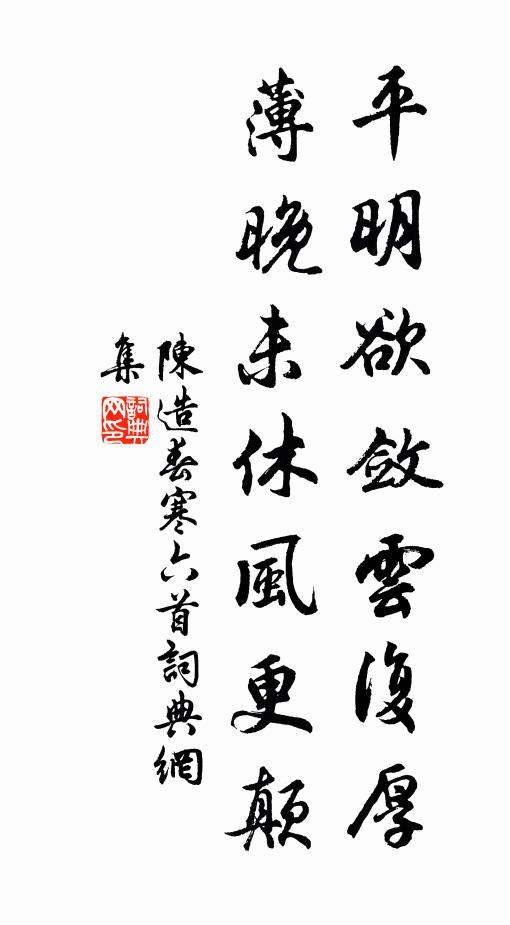 平明欲斂雲復厚
薄晚未休風更顛
陳造春寒六首詞典網
集
詞典
网印